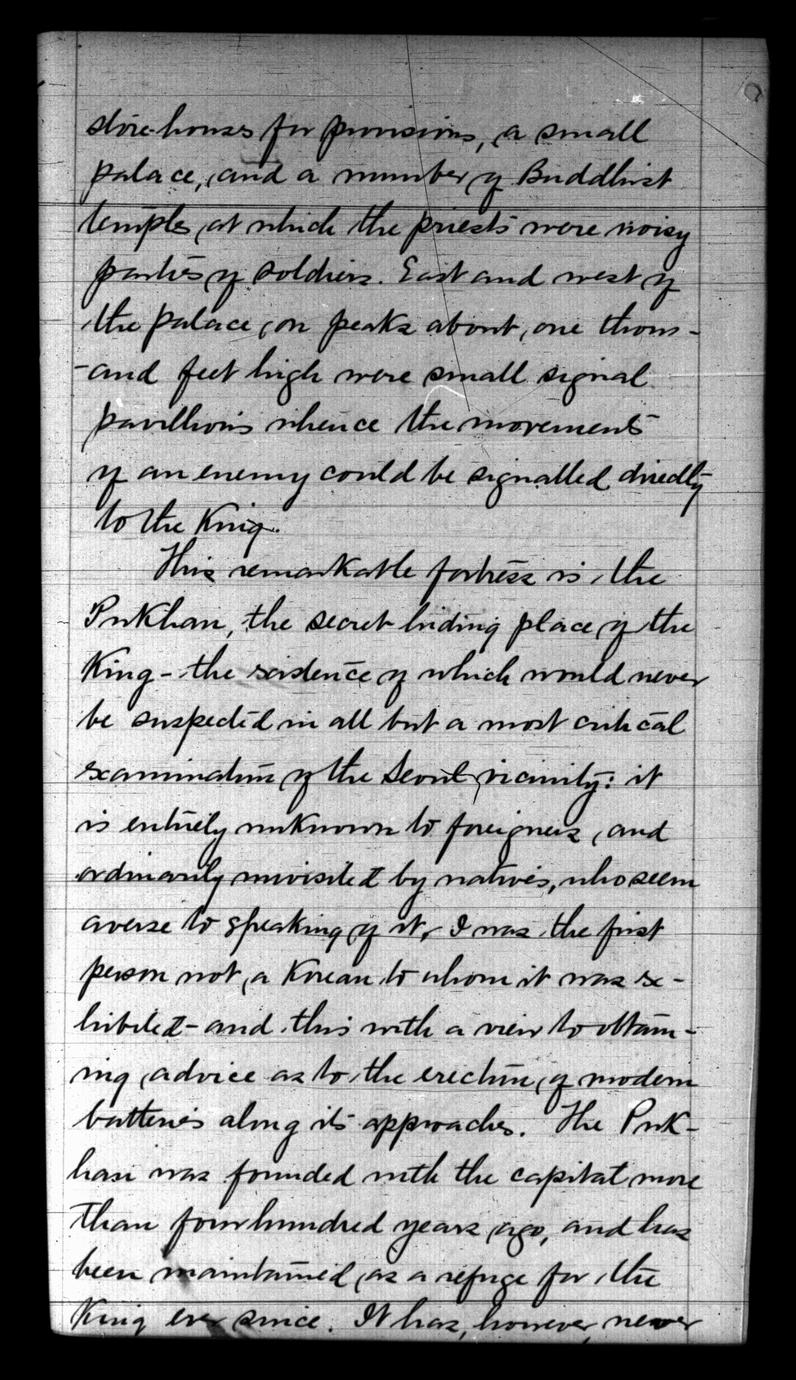 store-houses for provisions, a small
palace, and a number of Buddhist
temples, at which the priests were noisy
parties of soldiers. East and west of
the palace, on peaks about one thous-
-and feet high were small signal
pavillions whence the movements
of an enemy could be signalled directly
to the King.
This remarkable fortress is the
Pukhan, the secret hiding place of the
King - the existence of which would never
be suspected in all but a most critical
examination of the Seoul vicinity: it
is entirely unknown to foreigners, and
ordinarily unvisited by natives, who seem
averse to speaking of it. I was the first
person not a Korean to whom it was ex-
hibited - and this with a view to obtain-
ing advice as to the erection of modern
batteries along its approaches. The Puk-
han was founded with the capital more
than four hundred years ago, and has
been maintained as a refuge for the
King ever since. It has, however, never